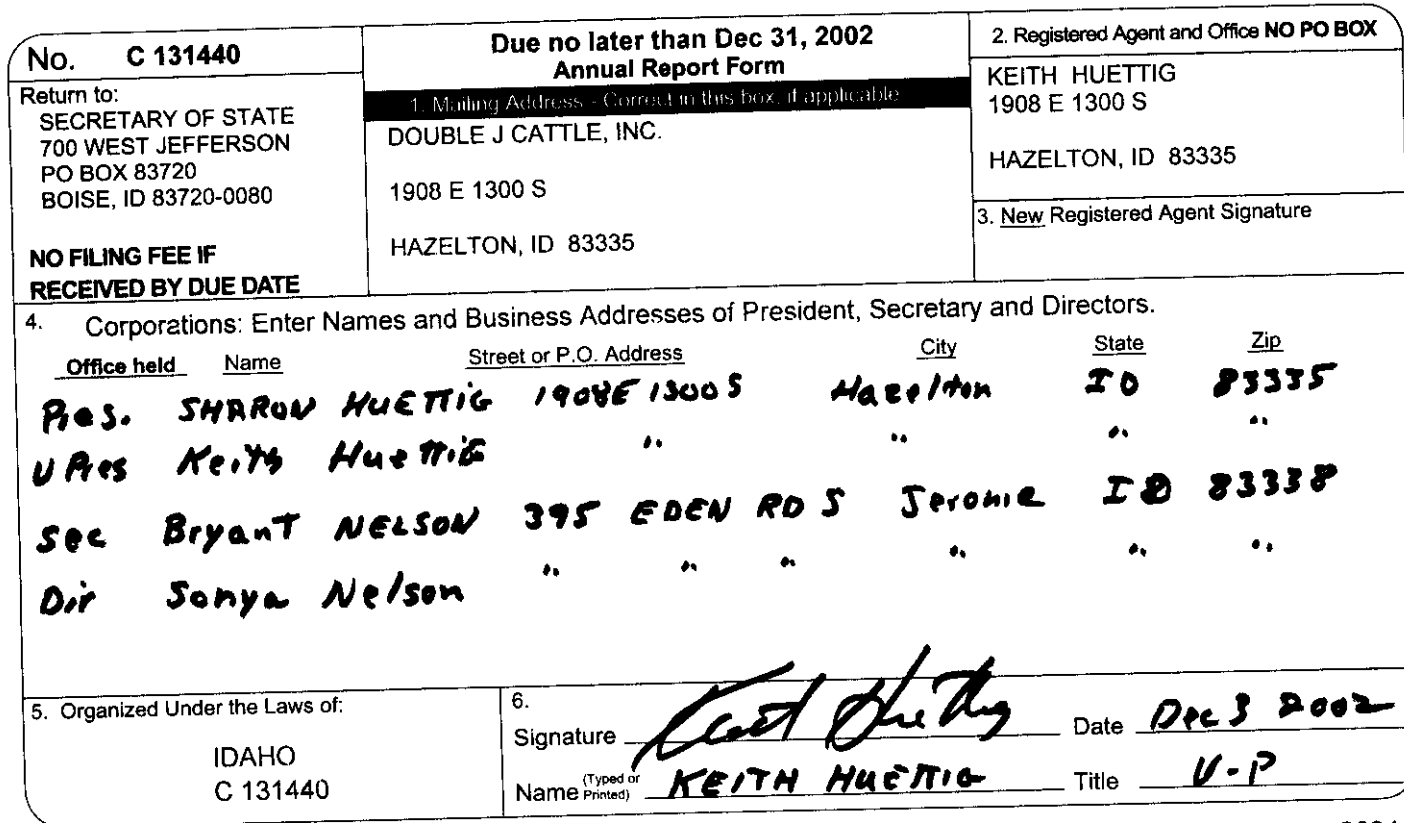 No. C 131440
Return to:
SECRETARY OF STATE
700 WEST JEFFERSON
PO BOX 83720
BOISE, ID 83720-0080
NO FILING FEE IF
RECEIVED BY DUE DATE
Due no later than Dec 31, 2002
Annual Report Form
1. Mailing Address - Correct in this box, if applicable
DOUBLE J CATTLE, INC.
1908 E 1300 S
HAZELTON, ID 83335
2. Registered Agent and Office NO PO BOX
KEITH HUETTIG
1908 E 1300 S
HAZELTON, ID 83335
3. New Registered Agent Signature
4. Corporations: Enter Names and Business Addresses of President, Secretary and Directors.
Office held Name Street or P.O. Address City State Zip
Pres. SHARON HUETTIG 1908E 1300 S Hazelton ID 83335
V Pres Keith Huettig " " " "
Sec Bryant NELSON 395 EDEN RD S Jerome ID 83338
Dir Sonya Nelson " " " " " "
5. Organized Under the Laws of:
IDAHO
C 131440
6.
Signature Keith Huettig Date Dec 3 2002
Name (Typed or Printed) KEITH HUETTIG Title V-P